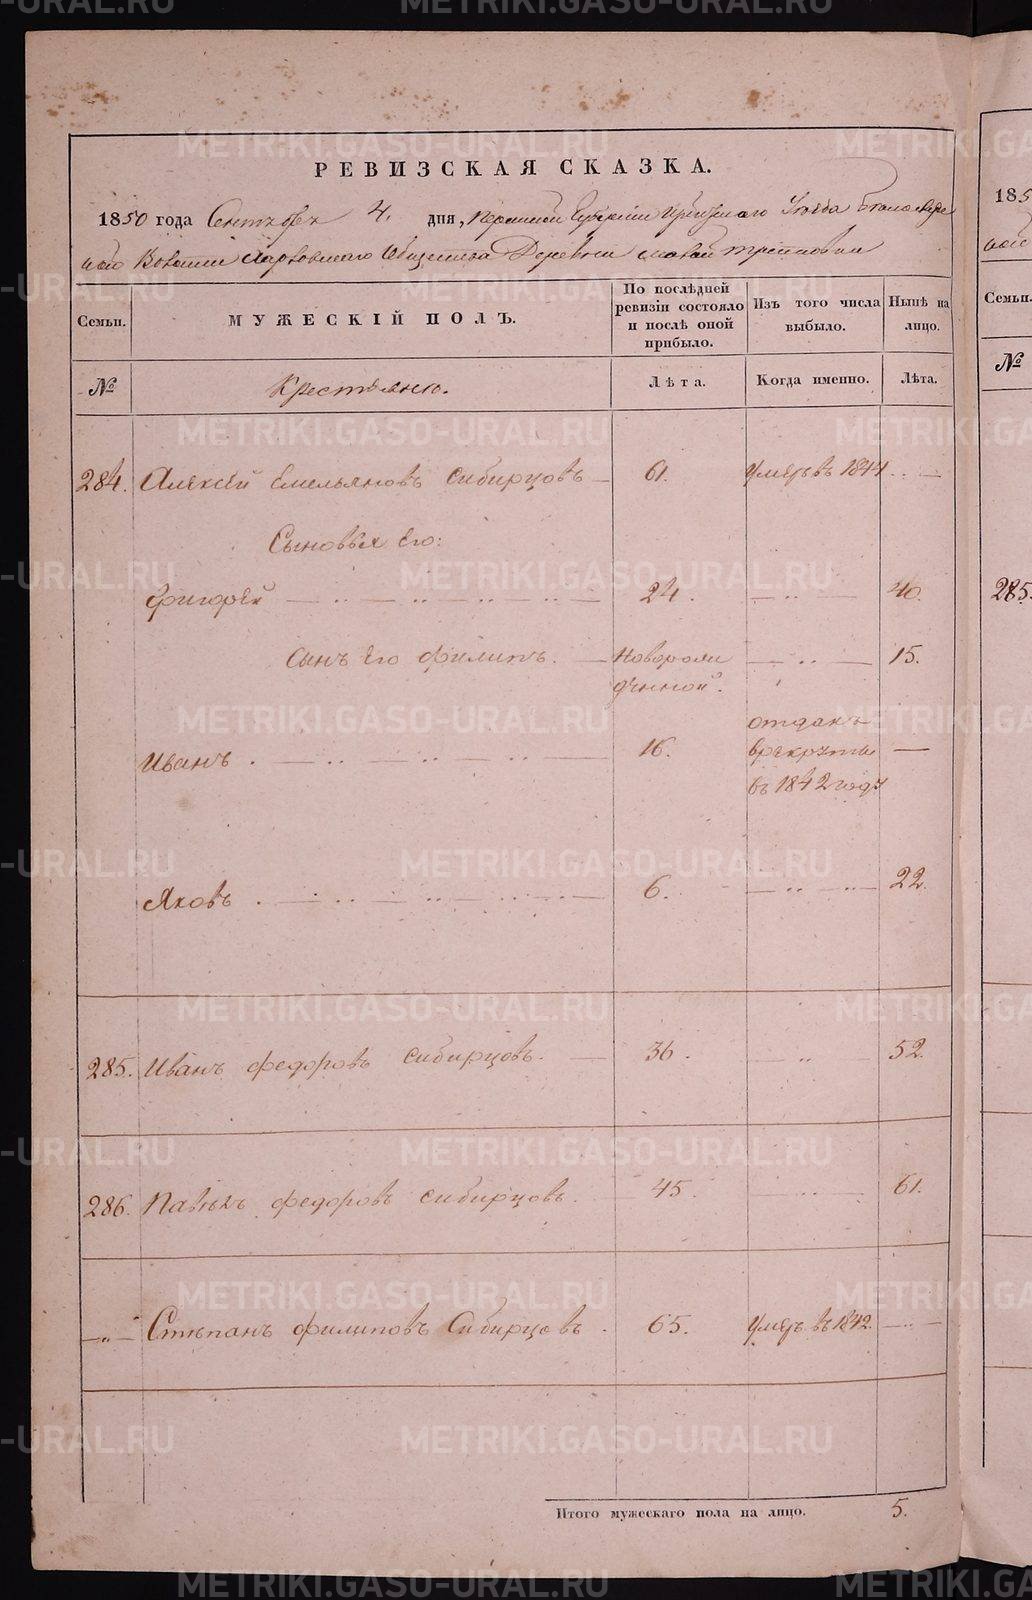 РЕВИЗСКАЯ СКАЗКА.
1850 года Сентября 4. дня, Пермской Губернии Ирбитскаго Уезда Белослуд
ской Волости Харловскаго Общества Деревни малой
Семьи.
МУЖЕСКІЙ ПОЛЪ.
По послѣдней ревизіи состояло и послѣ оной прибыло.
Изъ того числа выбыло.
Нынѣ на лицо.
№
Крестьяне.
Лѣта.
Когда именно.
Лѣта.
284. Алексѣй Емельяновъ Сибирцовъ — 61. умеръ въ 1844 —
Сыновья Его:
Григорей 24. — 40.
сынъ Его Филипъ. — Новорож
денной. — 15.
Иванъ . 16. отданъ
врекруты —
въ 1842 году
Яковъ . 6. — 22.
285. Иванъ федоровъ Сибирцовъ. — 36. — 52.
286. Павелъ федоровъ сибирцовъ. 45. — 61.
—„— Степанъ филиповъ Сибирцовъ . 65. умеръ въ 1842. —
Итого мужескаго пола на лицо. 5.
185
ской
Семьи.
№
285.
METRIKI.GASO-URAL.RU